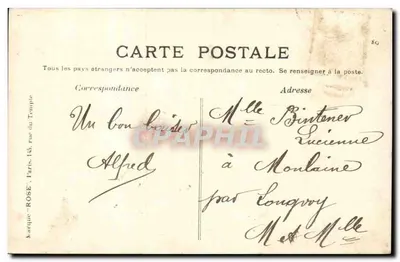 CARTE POSTALE
Tous les pays étrangers n'acceptent pas la correspondance au recto. Se renseigner à la poste.
Correspondance
Adresse
Un bon baiser
Alfred
Mlle Bintener
Lucienne
à Moulaine
par Longwy
M et Mlle
Marque "ROSE", Paris, 145, rue du Temple
CPAPHIL